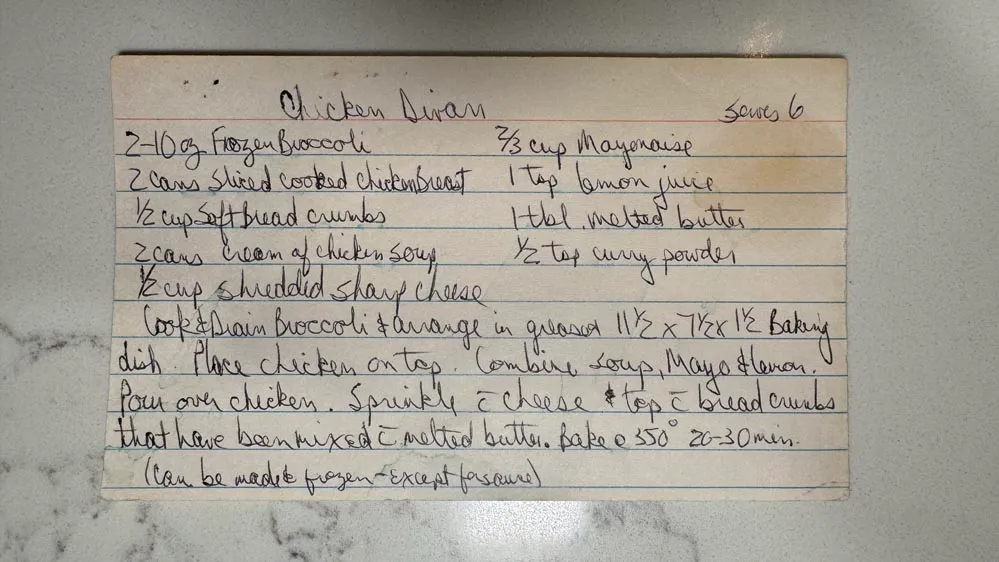 Chicken Divan Serves 6
2-10 oz Frozen Broccoli 2/3 cup Mayonaise
2 cans sliced cooked chicken breast 1 tsp lemon juice
1/2 cup Soft bread crumbs 1 tbl. melted butter
2 cans cream of chicken soup 1/2 tsp curry powder
1/2 cup shredded sharp cheese
Cook & Drain Broccoli & arrange in greased 11 1/2 x 7 1/2 x 1 1/2 Baking
dish. Place chicken on top. Combine soup, Mayo & lemon.
Pour over chicken. Sprinkle c̄ cheese & top c̄ bread crumbs
that have been mixed c̄ melted butter. Bake @ 350° 20-30 min.
(Can be made & frozen - Except for sauce)